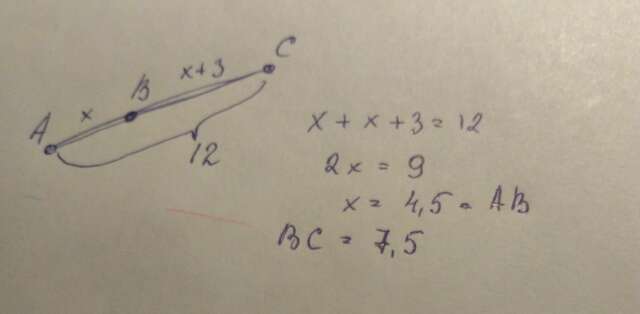 C
x+3
B
x
A
12
x + x + 3 = 12
2x = 9
x = 4,5 = AB
BC = 7,5